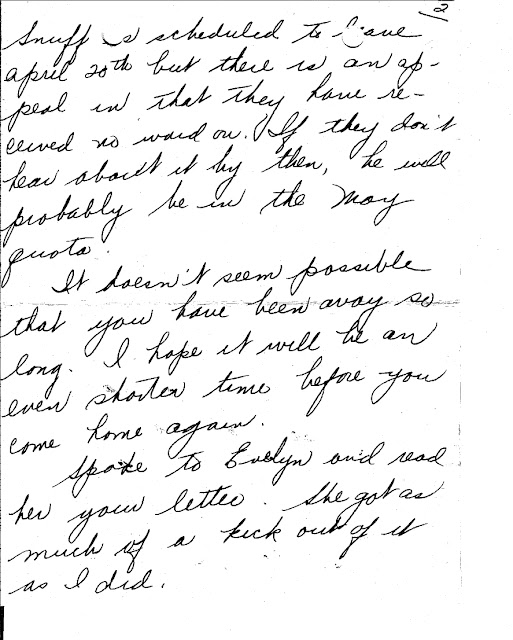 2
Snuff is scheduled to leave
april 20th but there is an ap-
peal in that they have re-
ceived no word on. If they don't
hear about it by then, he will
probably be in the May
quota.
It doesn't seem possible
that you have been away so
long. I hope it will be an
even shorter time before you
come home again.
Spoke to Evelyn and read
her your letter. She got as
much of a kick out of it
as I did.